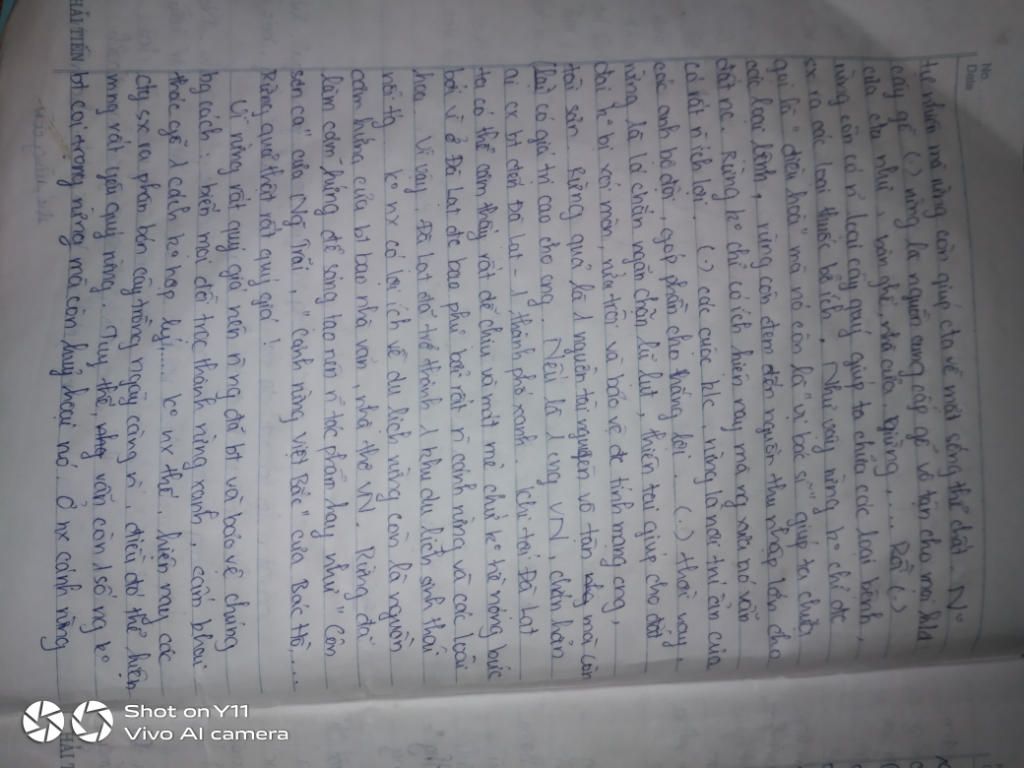 No.
Date
tự nhiên mà rừng còn giúp ta về mặt sống thể chất. Nó
cấp gỗ (.) rừng là nguồn cung cấp gỗ vô tận cho mọi
của cta như, bàn ghế, nhà cửa, giường, .... Rồi (.)
rừng còn có n~ loại cây quý giúp ta chữa các loài bệnh,
sx ra các loại thuốc bổ ích. Như vậy rừng ko chỉ đc
gọi là "điều hoà" mà nó còn là "vị bác sĩ" giúp ta chữa
các loại bệnh, rừng còn đem đến nguồn thu nhập lớn cho
đất nc. Rừng ko chỉ có ích hiện nay mà ngày xưa nó vẫn
có rất n` ích lợi. (.) các cuộc k/c, rừng là nơi trú ẩn của
các anh bộ đội, góp phần cho thắng lợi. (.) thời nay,
rừng là lá chắn ngăn chặn lũ lụt, thiên tai giúp cho đất
đai ko bị xói mòn, nứt trôi và bảo vệ đc tính mạng cong,
tài sản. Rừng quả là 1 nguồn tài nguyên vô tận mà còn
có giá trị cao cho cng. Nếu là 1 cng VN, chắn hẳn
ai cx bt đến Đà Lạt - 1 thành phố xanh. Khi tới Đà Lạt
ta có thể cảm thấy rất dễ chịu và mát mẻ chứ ko hề nóng bức
bởi vì ở Đà Lạt đc bao phủ bởi rất n` cánh rừng và các loài
hoa. Vì vậy, Đà Lạt đã trở thành 1 khu du lịch sinh thái
nổi tg. Ko nx có lợi ích về du lịch rừng còn là nguồn
cảm hứng của bt bao nhà văn, nhà thơ VN. Rừng đã
làm cảm hứng để sáng tạo nên n~ tác phẩm hay như "Côn
sơn ca" của Ng Trãi, "Cảnh rừng Việt Bắc" của Bác Hồ,...
Rừng quả thật rất quý giá!
Vì rừng rất quý giá nên n~ ng đã bt và bảo vệ chúng
bằng cách: biến mọi đồi trọc thành rừng xanh, cấm khai
thác gỗ 1 cách ko hợp lý.... ko nx thế, hiện nay các
cty sx ra phân bón cây trồng ngày càng n`, điều đó thể hiện
mng rất yêu quý rừng. Tuy thế, vẫn còn 1 số ng ko
bt coi trọng rừng mà còn huỷ hoại nó. Ở mx cánh rừng
HẢI TIẾN
Shot on Y11
Vivo AI camera